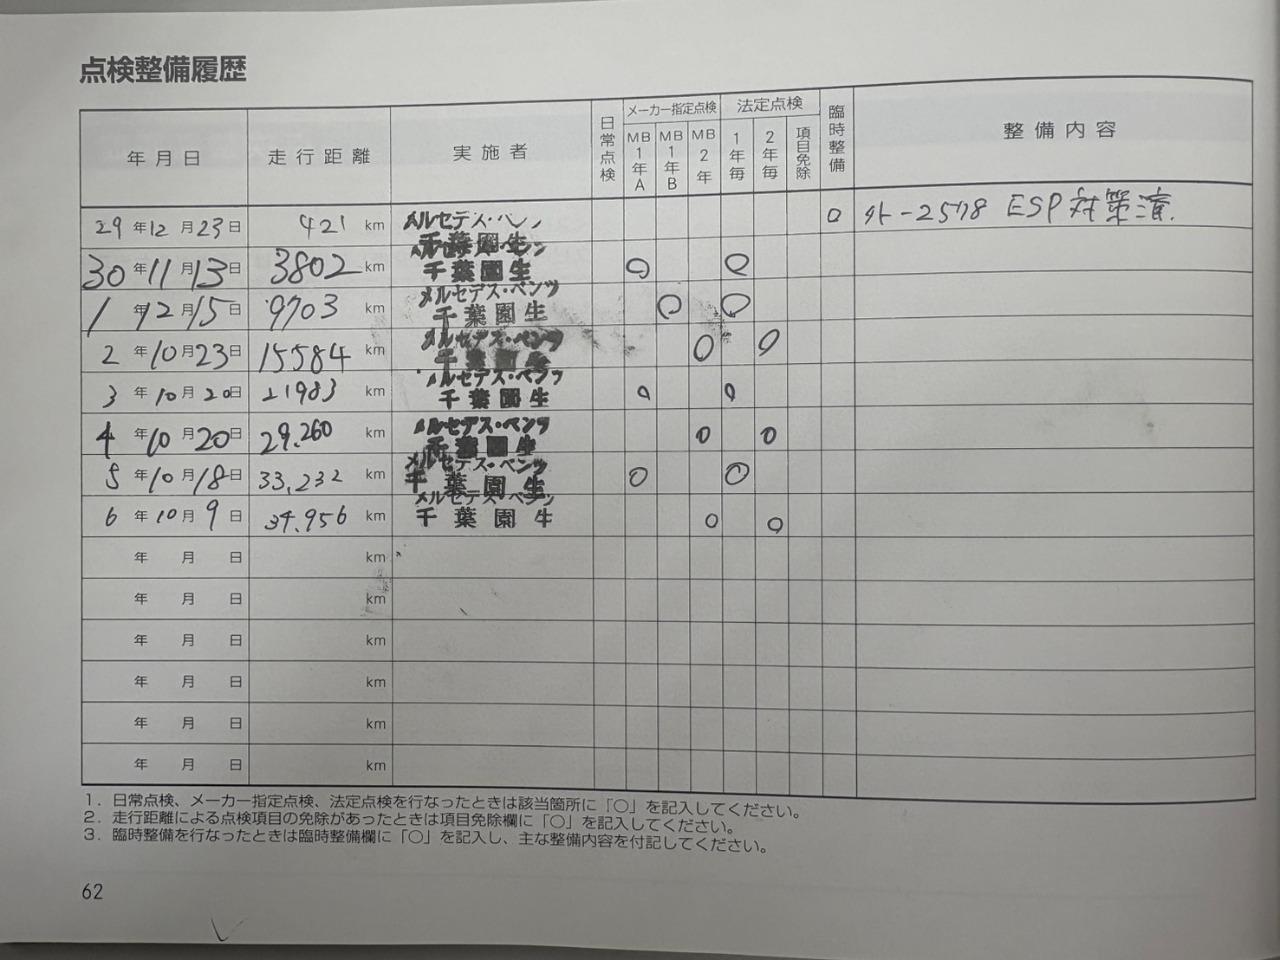 点検整備履歴
年月日 走行距離 実施者 日常点検 メーカー指定点検 法定点検 臨時整備 整備内容
MB1年A MB1年B MB2年 1年毎 2年毎 項目免除
29年12月23日 421 km メルセデス・ベンツ 千葉園生 ○ 外-2578 ESP対策済.
30年11月13日 3802 km メルセデス・ベンツ 千葉園生 ○ ○
1年12月15日 9703 km メルセデス・ベンツ 千葉園生 ○ ○
2年10月23日 15584 km メルセデス・ベンツ 千葉園生 ○ ○
3年10月20日 21983 km メルセデス・ベンツ 千葉園生 ○ ○
4年10月20日 29.260 km メルセデス・ベンツ 千葉園生 ○ ○
5年10月18日 33,232 km メルセデス・ベンツ 千葉園生 ○ ○
6年10月9日 34.956 km メルセデス・ベンツ 千葉園生 ○ ○
年 月 日 km
年 月 日 km
年 月 日 km
年 月 日 km
年 月 日 km
年 月 日 km
1. 日常点検、メーカー指定点検、法定点検を行なったときは該当箇所に「○」を記入してください。
2. 走行距離による点検項目の免除があったときは項目免除欄に「○」を記入してください。
3. 臨時整備を行なったときは臨時整備欄に「○」を記入し、主な整備内容を付記してください。
62